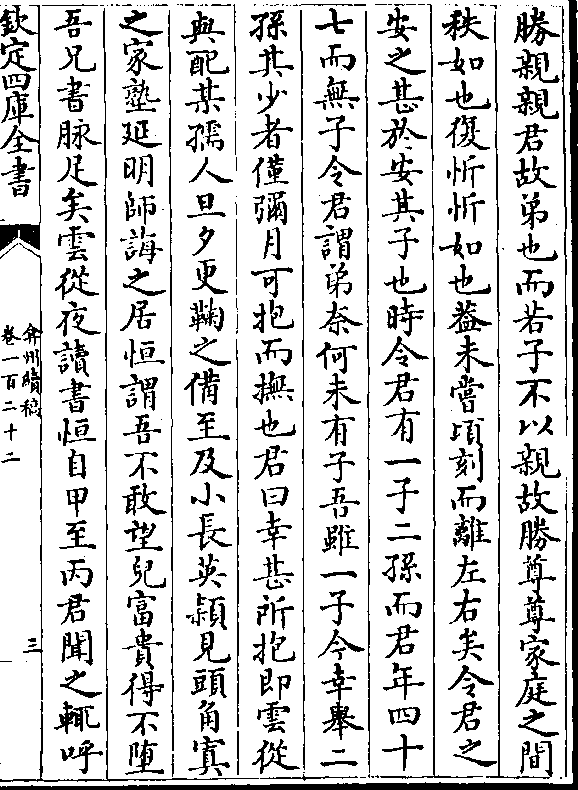 勝親親君故弟也而若子不以親故勝尊尊家庭之間
秩如也復忻忻如也葢未嘗頃刻而離左右矣令君之
安之甚於安其子也時令君有一子二孫而君年四十
七而無子令君謂弟奈何未有子吾雖一子今幸舉二
孫其少者僅彌月可抱而撫也君曰幸甚所抱即雲從
與配某孺人旦夕更鞠之備至及小長英頴見頭角寘
之家塾延明師誨之居恒謂吾不敢望兒富貴得不墮
吾兄書脉足矣雲從夜讀書恒自甲至丙君聞之輙呼
欽定四庫全書
弇州續稿
卷一百二十二
三